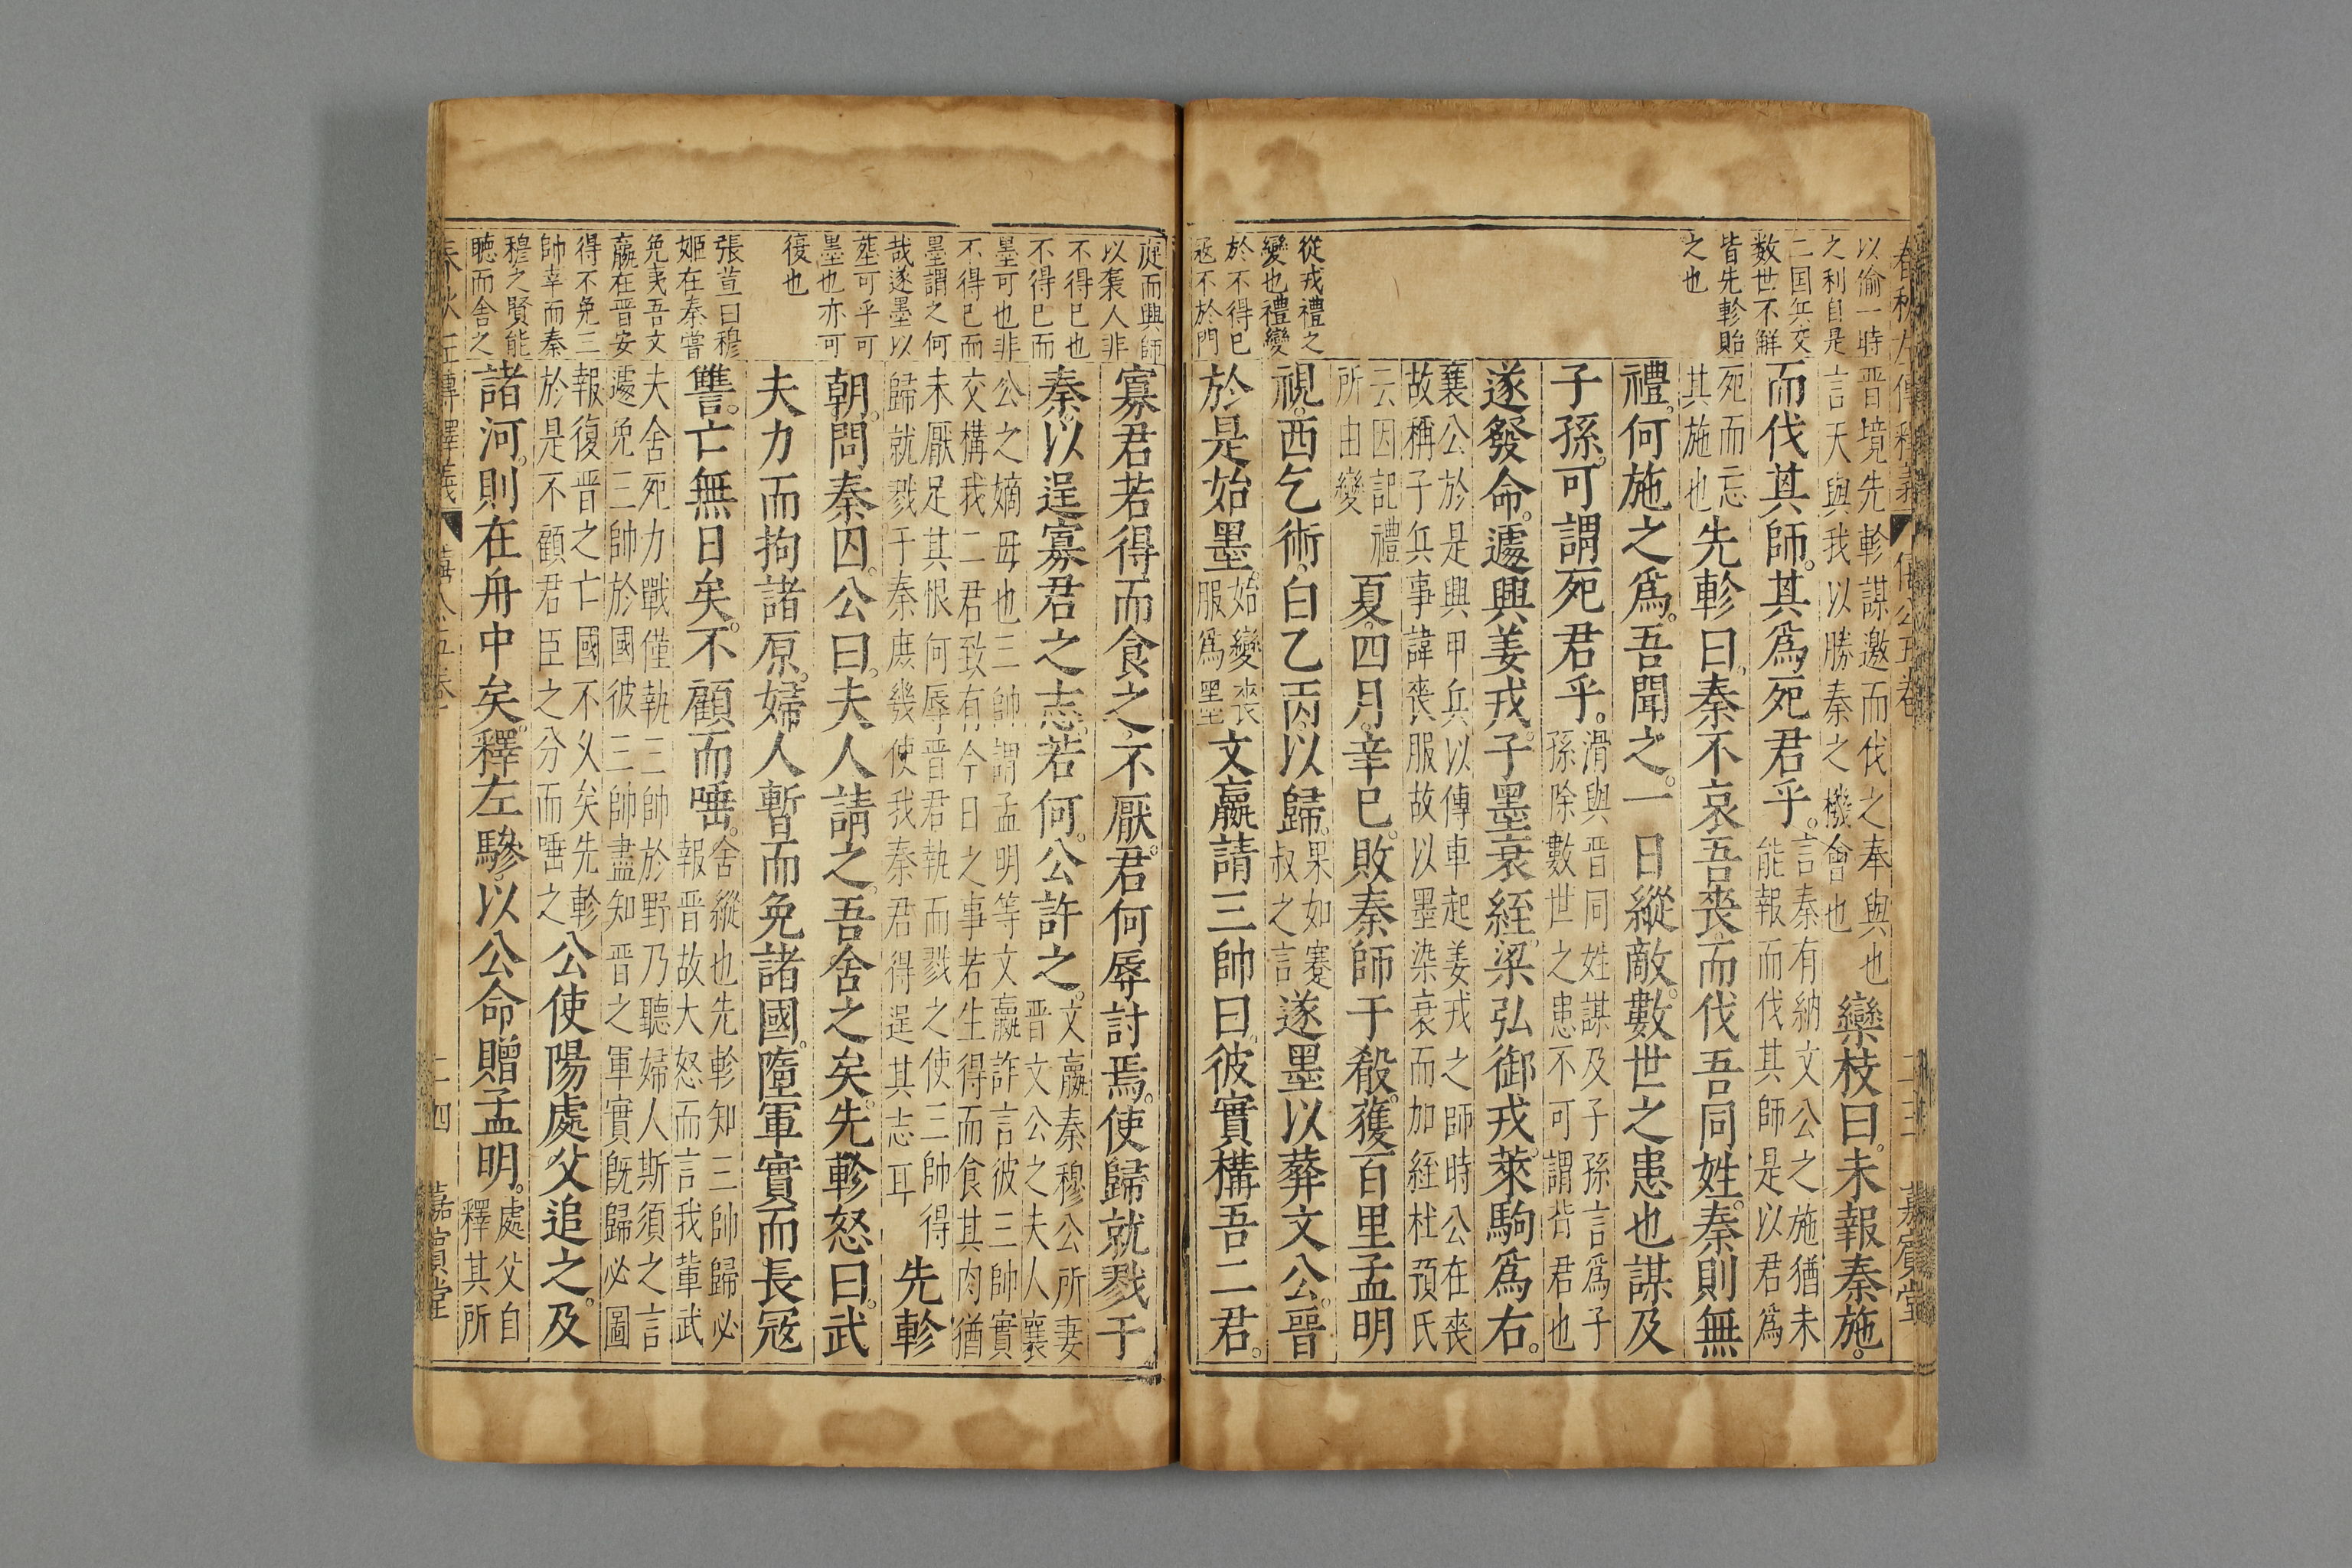 春秋左傳釋義 僖公五卷 二三 嘉賓堂
以偷一時
之利自是
二国兵交
数世不觧
皆先軫貽
之也
從戎禮之
變也禮變
於不得已
返不於門
晋境先軫謀邀而伐之奉與也
言天與我以勝秦之機會也
欒枝曰。未報秦施。
而伐其師。其爲死君乎。
言秦有納文公之施猶未
能報而伐其師是以君爲
死而忘
其施也
先軫曰。秦不哀吾喪。而伐吾同姓。秦則無
禮。何施之爲。吾聞之。一日縱敵。數世之患也謀及
子孫。可謂死君乎。
滑與晋同姓謀及子孫言爲子
孫除數世之患不可謂背君也
遂發命。遽興姜戎。子墨衰絰。梁弘御戎。萊駒爲右。
襄公於是興甲兵以傳車起姜戎之師時公在喪
故稱子兵事諱喪服故以墨染衰而加絰杜預氏
云因記禮
所由變
夏。四月。辛巳。敗秦師于殽。獲百里孟明
視。西乞術。白乙丙。以歸。
果如蹇
叔之言
遂墨以葬文公。晉
於是始墨
始變喪
服爲墨
文嬴請三帥曰。彼實構吾二君。
庭而興師
以衰人非
不得已也
不得已而
墨可也非
不得已而
墨謂之何
哉遂墨以
塟可乎可
墨也亦可
復也
張萱曰穆
姬在秦嘗
免夷吾文
嬴在晋安
得不免三
帥幸而秦
穆之賢能
聴而舍之
寡君若得而食之。不厭。君何辱討焉。使歸就戮于
秦。以逞寡君之志。若何。公許之。
文嬴秦穆公所妻
晋文公之夫人襄
公之嫡毋也三帥謂孟明等文嬴詐言彼三帥實
交構我二君致有今日之事若生得而食其肉猶
未厭足其恨何辱晋君執而戮之使三帥得
歸就戮于秦庶幾使我秦君得逞其志耳
先軫
朝。問秦囚。公曰。夫人請之。吾舍之矣。先軫怒曰。武
夫力而拘諸原。婦人暫而免諸國。墮軍實而長寇
讐。亡無日矣。不顧而唾。
舍縱也先軫知三帥歸必
報晋故大怒而言我輩武
夫舍死力戰僅執三帥於野乃聽婦人斯須之言
遽免三帥於國彼三帥盡知晋之軍實旣歸必圖
報復晋之亡國不久矣先軫
於是不顧君臣之分而唾之
公使陽處父追之。及
諸河。則在舟中矣。釋左驂。以公命贈孟明。
處父自
釋其所
春秋左傳釋義 僖公五卷 二四 嘉賓堂